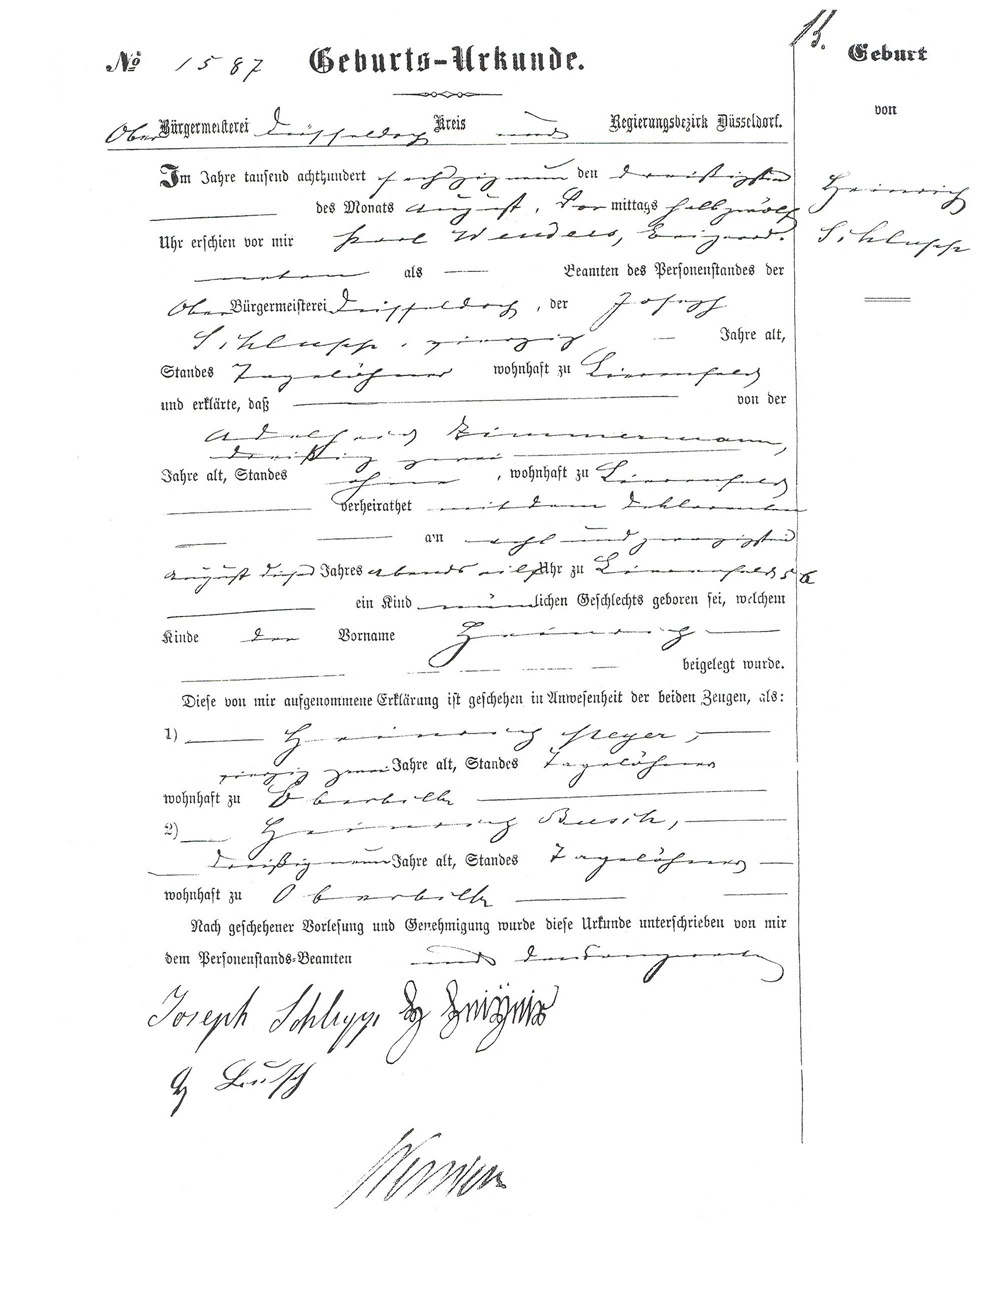 No 1587 Geburts-Urkunde.
Ober Bürgermeisterei Düsseldorf Kreis und Regierungsbezirk Düsseldorf.
Im Jahre tausend achthundert sechszig neun den dreißigsten
des Monats August, Vor mittags halb zwölf
Uhr erschien vor mir Karl Wenders, Beigeord-
neten als Beamten des Personenstandes der
Ober Bürgermeisterei Düsseldorf, der Joseph
Schlupp, vierzig Jahre alt,
Standes Tagelöhner wohnhaft zu Lierenfeld
und erklärte, daß von der
Adelheid Zimmermann,
dreißig zwei
Jahre alt, Standes ohne, wohnhaft zu Lierenfeld
verheirathet mit dem Deklaranten
am acht und zwanzigsten
August dieses Jahres Abends eilf Uhr zu Lierenfeld 56
ein Kind männlichen Geschlechts geboren sei, welchem
Kinde der Vorname Heinrich
beigelegt wurde.
Diese von mir aufgenommene Erklärung ist geschehen in Anwesenheit der beiden Zeugen, als:
1) Heinrich
vierzig zwei Jahre alt, Standes Tagelöhner
wohnhaft zu Oberbilk
2) Heinrich Busch,
dreißig neun Jahre alt, Standes Tagelöhner
wohnhaft zu Oberbilk
Nach geschehener Vorlesung und Genehmigung wurde diese Urkunde unterschrieben von mir
dem Personenstands-Beamten und
Joseph Schlupp H
H Busch
B.
Geburt
von
Heinrich
Schlupp